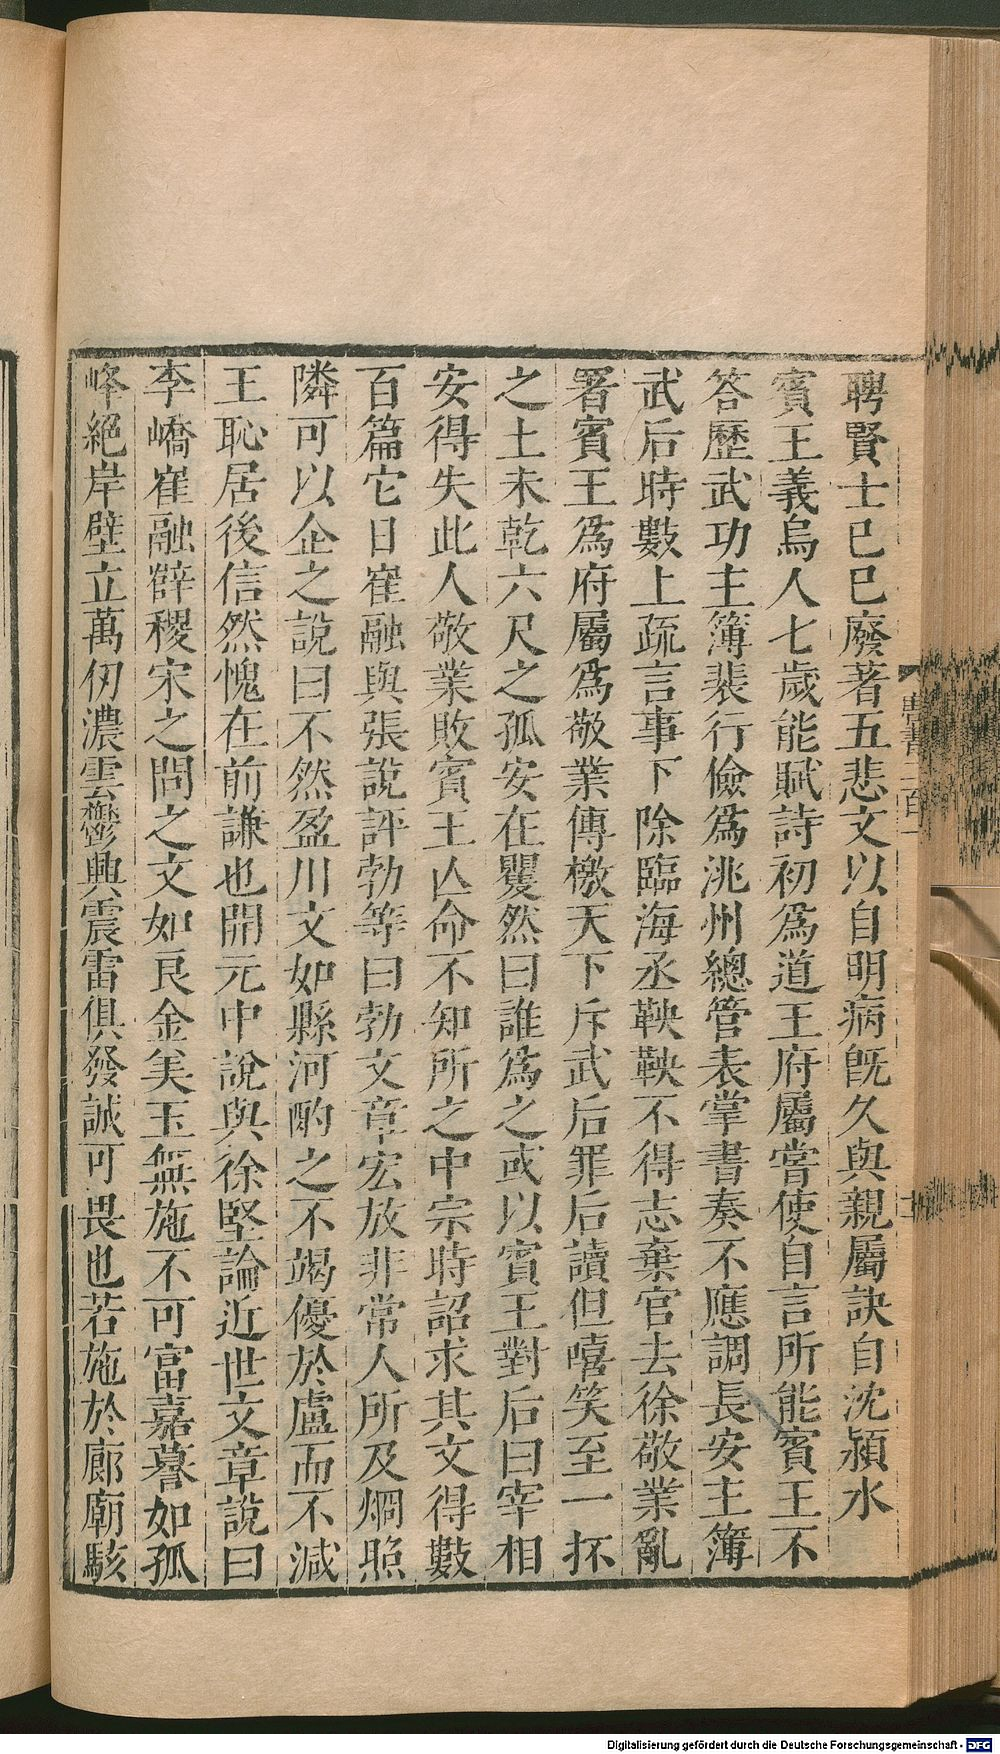 聘賢士已已廢著五悲文以自明病旣久與親屬訣自沈潁水
賓王義烏人七歲能賦詩初爲道王府屬嘗使自言所能賓王不
答歷武功主簿裴行儉爲洮州總管表掌書奏不應調長安主簿
武后時數上疏言事下除臨海丞鞅鞅不得志棄官去徐敬業亂
署賓王爲府屬爲敬業傳檄天下斥武后罪后讀但嘻笑至一抔
之土未乾六尺之孤安在矍然曰誰爲之或以賓王對后曰宰相
安得失此人敬業敗賓王亾命不知所之中宗時詔求其文得數
百篇它日崔融與張說評勃等曰勃文章宏放非常人所及烱照
隣可以企之說曰不然盈川文如縣河酌之不竭優於盧而不減
王恥居後信然愧在前謙也開元中說與徐堅論近世文章說曰
李嶠崔融薛稷宋之問之文如良金美玉無施不可富嘉謩如孤
峰絕岸壁立萬仞濃雲鬱興震雷俱發誠可畏也若施於廊廟駭
唐書二百一
Digitalisierung gefördert durch die Deutsche Forschungsgemeinschaft - DFG